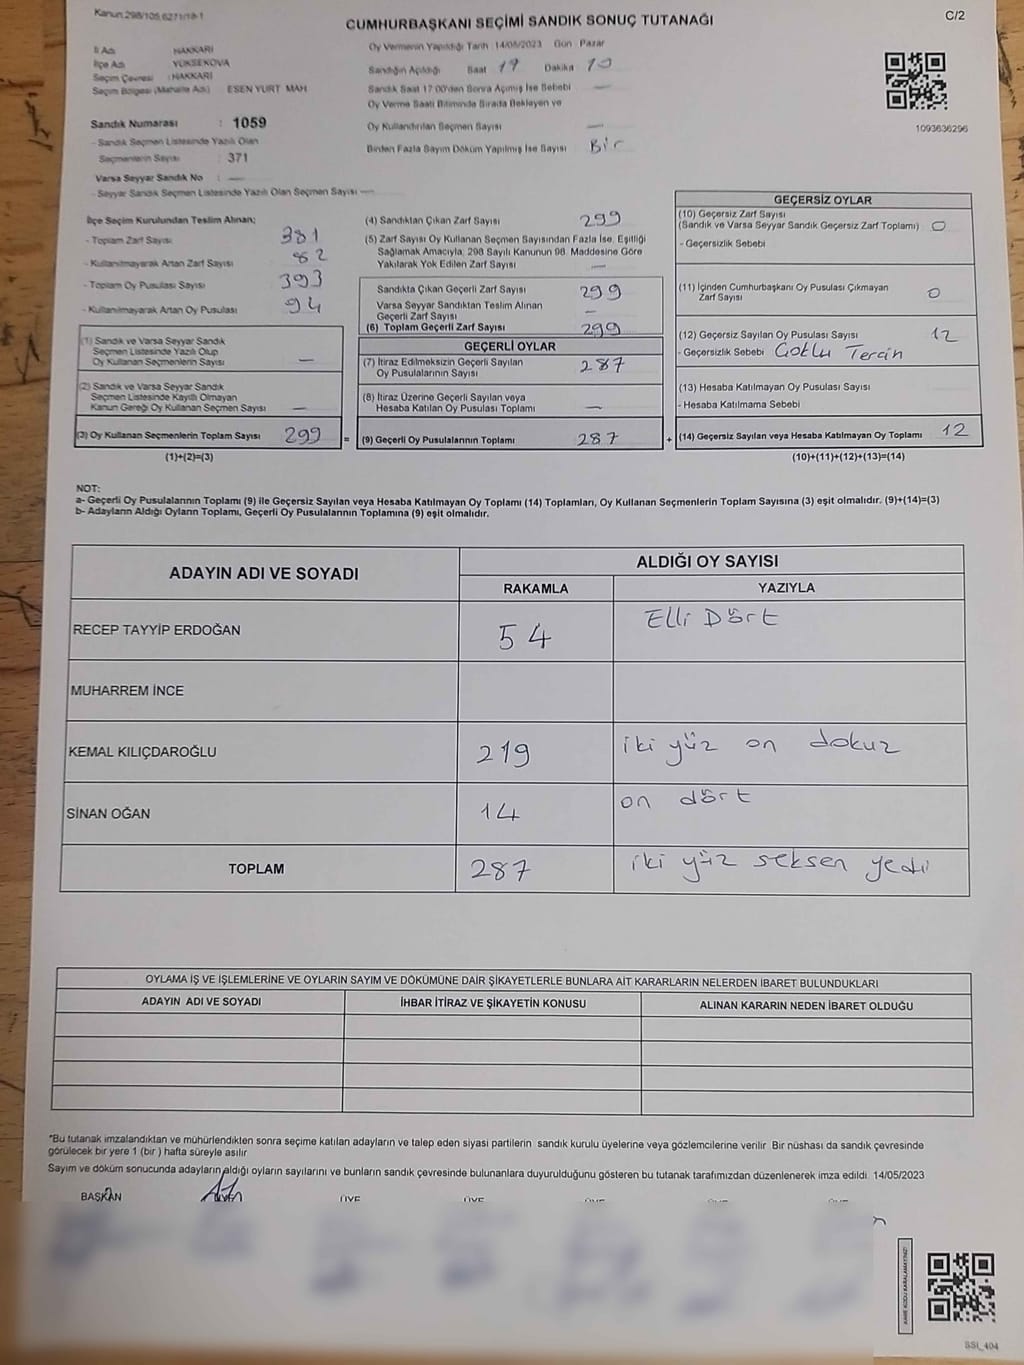 Kanun:298/105,6271/19-1
C/2
CUMHURBAŞKANI SEÇİMİ SANDIK SONUÇ TUTANAĞI
İl Adı HAKKARİ
İlçe Adı YÜKSEKOVA
Seçim Çevresi : HAKKARİ
Seçim Bölgesi (Mahalle Adı) ESEN YURT MAH
Oy Vermenin Yapıldığı Tarih : 14/05/2023 Gün : Pazar
Sandığın Açıldığı Saat 17 Dakika 10
Sandık Saat 17:00'den Sonra Açılmış İse Sebebi —
Oy Verme Saati Bitiminde Sırada Bekleyen ve
Oy Kullandırılan Seçmen Sayısı —
Birden Fazla Sayım Döküm Yapılmış İse Sayısı Bir
1093636296
Sandık Numarası : 1059
- Sandık Seçmen Listesinde Yazılı Olan
Seçmenlerin Sayısı : 371
Varsa Seyyar Sandık No : —
- Seyyar Sandık Seçmen Listesinde Yazılı Olan Seçmen Sayısı —
İlçe Seçim Kurulundan Teslim Alınan;
- Toplam Zarf Sayısı 381
- Kullanılmayarak Artan Zarf Sayısı 82
- Toplam Oy Pusulası Sayısı 393
- Kullanılmayarak Artan Oy Pusulası 94
(1) Sandık ve Varsa Seyyar Sandık
Seçmen Listesinde Yazılı Olup
Oy Kullanan Seçmenlerin Sayısı —
(2) Sandık ve Varsa Seyyar Sandık
Seçmen Listesinde Kayıtlı Olmayan
Kanun Gereği Oy Kullanan Seçmen Sayısı —
(3) Oy Kullanan Seçmenlerin Toplam Sayısı 299
(1)+(2)=(3)
=
(4) Sandıktan Çıkan Zarf Sayısı 299
(5) Zarf Sayısı Oy Kullanan Seçmen Sayısından Fazla İse, Eşitliği
Sağlamak Amacıyla; 298 Sayılı Kanunun 98. Maddesine Göre
Yakılarak Yok Edilen Zarf Sayısı —
Sandıkta Çıkan Geçerli Zarf Sayısı 299
Varsa Seyyar Sandıktan Teslim Alınan
Geçerli Zarf Sayısı —
(6) Toplam Geçerli Zarf Sayısı 299
GEÇERLİ OYLAR
(7) İtiraz Edilmeksizin Geçerli Sayılan
Oy Pusulalarının Sayısı 287
(8) İtiraz Üzerine Geçerli Sayılan veya
Hesaba Katılan Oy Pusulası Toplamı —
(9) Geçerli Oy Pusulalarının Toplamı 287
+
GEÇERSİZ OYLAR
(10) Geçersiz Zarf Sayısı
(Sandık ve Varsa Seyyar Sandık Geçersiz Zarf Toplamı) 0
- Geçersizlik Sebebi
(11) İçinden Cumhurbaşkanı Oy Pusulası Çıkmayan
Zarf Sayısı 0
(12) Geçersiz Sayılan Oy Pusulası Sayısı 12
- Geçersizlik Sebebi Çoklu Tercih
(13) Hesaba Katılmayan Oy Pusulası Sayısı
- Hesaba Katılmama Sebebi
(14) Geçersiz Sayılan veya Hesaba Katılmayan Oy Toplamı 12
(10)+(11)+(12)+(13)=(14)
NOT:
a- Geçerli Oy Pusulalarının Toplamı (9) ile Geçersiz Sayılan veya Hesaba Katılmayan Oy Toplamı (14) Toplamları, Oy Kullanan Seçmenlerin Toplam Sayısına (3) eşit olmalıdır. (9)+(14)=(3)
b- Adayların Aldığı Oyların Toplamı, Geçerli Oy Pusulalarının Toplamına (9) eşit olmalıdır.
ADAYIN ADI VE SOYADI
ALDIĞI OY SAYISI
RAKAMLA YAZIYLA
RECEP TAYYİP ERDOĞAN 54 Elli Dört
MUHARREM İNCE
KEMAL KILIÇDAROĞLU 219 iki yüz on dokuz
SİNAN OĞAN 14 on dört
TOPLAM 287 iki yüz seksen yedi
OYLAMA İŞ VE İŞLEMLERİNE VE OYLARIN SAYIM VE DÖKÜMÜNE DAİR ŞİKAYETLERLE BUNLARA AİT KARARLARIN NELERDEN İBARET BULUNDUKLARI
ADAYIN ADI VE SOYADI İHBAR İTİRAZ VE ŞİKAYETİN KONUSU ALINAN KARARIN NEDEN İBARET OLDUĞU
*Bu tutanak imzalandıktan ve mühürlendikten sonra seçime katılan adayların ve talep eden siyasi partilerin sandık kurulu üyelerine veya gözlemcilerine verilir. Bir nüshası da sandık çevresinde
görülecek bir yere 1 (bir) hafta süreyle asılır.
Sayım ve döküm sonucunda adayların aldığı oyların sayılarını ve bunların sandık çevresinde bulunanlara duyurulduğunu gösteren bu tutanak tarafımızdan düzenlenerek imza edildi. 14/05/2023
BAŞKAN ÜYE ÜYE ÜYE
KARE KODU KARALAMAYINIZ!
SSI_404